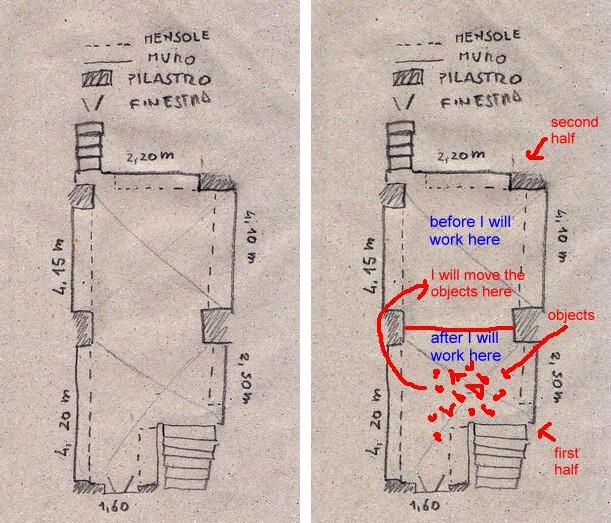 MENSOLE
MURO
PILASTRO
FINESTRA
2,20 m
4,15 m
4,10 m
4,20 m
2,50 m
1,60
MENSOLE
MURO
PILASTRO
FINESTRA
second
half
2,20 m
before I will
work here
4,15 m
4,10 m
I will move the
objects here
objects
after I will
work here
4,20 m
2,50 m
first
half
1,60